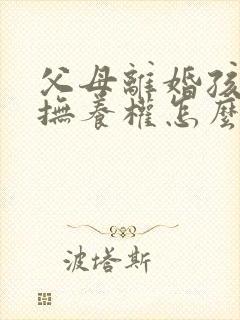 父母離婚孩
撫養權怎麼
波塔斯